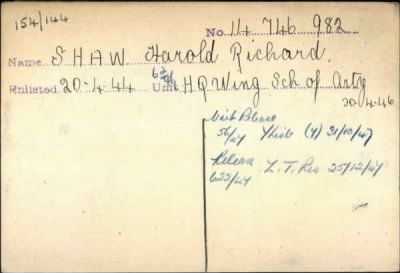 154/144
No. 14 746 982
Name SHAW Harold Richard.
Enlisted 20-4-44 Unit HQ Wing Sch of Arty
30-4-46
Release
56/47 (Y) 31/10/47
Release L.T. Res 25/12/47
622/47